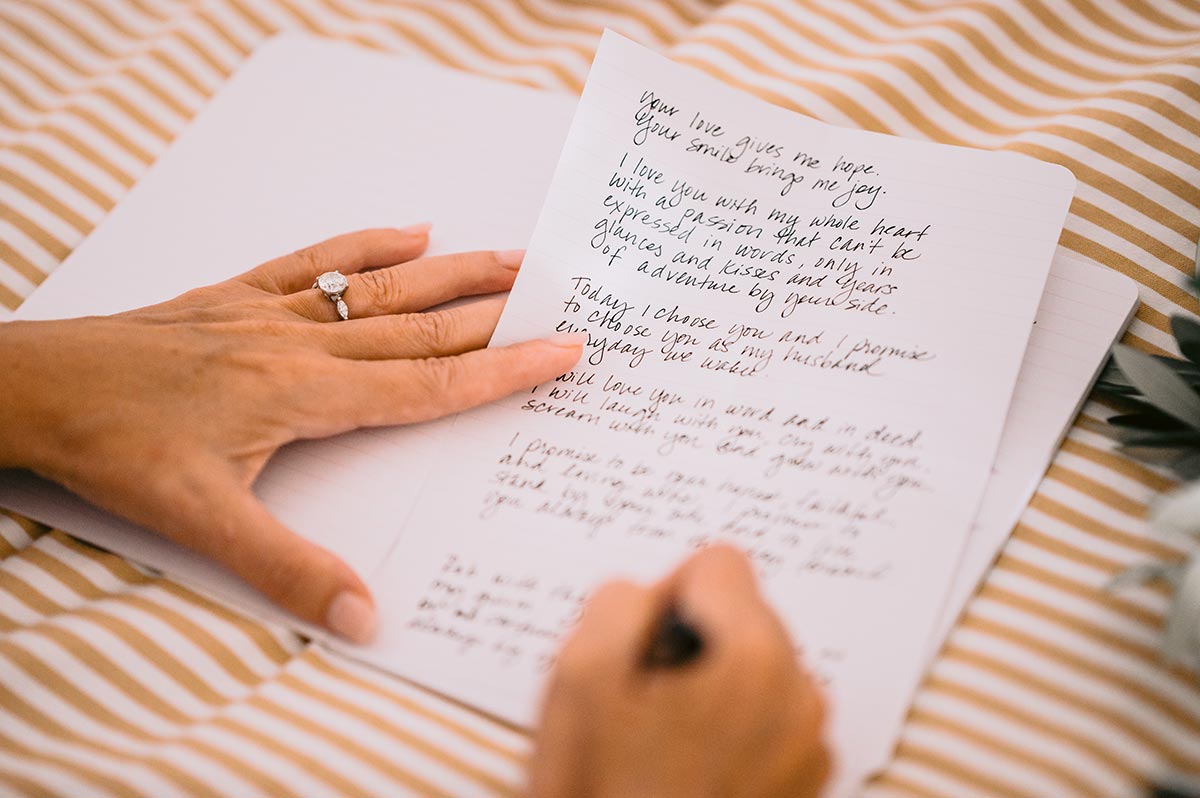 your love gives me hope.
Your smile brings me joy.
I love you with my whole heart
with a passion that can't be
expressed in words, only in
glances and kisses and years
of adventure by your side.
Today I choose you and I promise
to choose you as my husband
everyday we wake.
I will love you in word and in deed.
I will laugh with you, cry with you,
scream with you and grow with you.
I promise to be your honest, faithful
and loving wife, partner to
stand by your side and to love
you always from this day forward
But with
always by